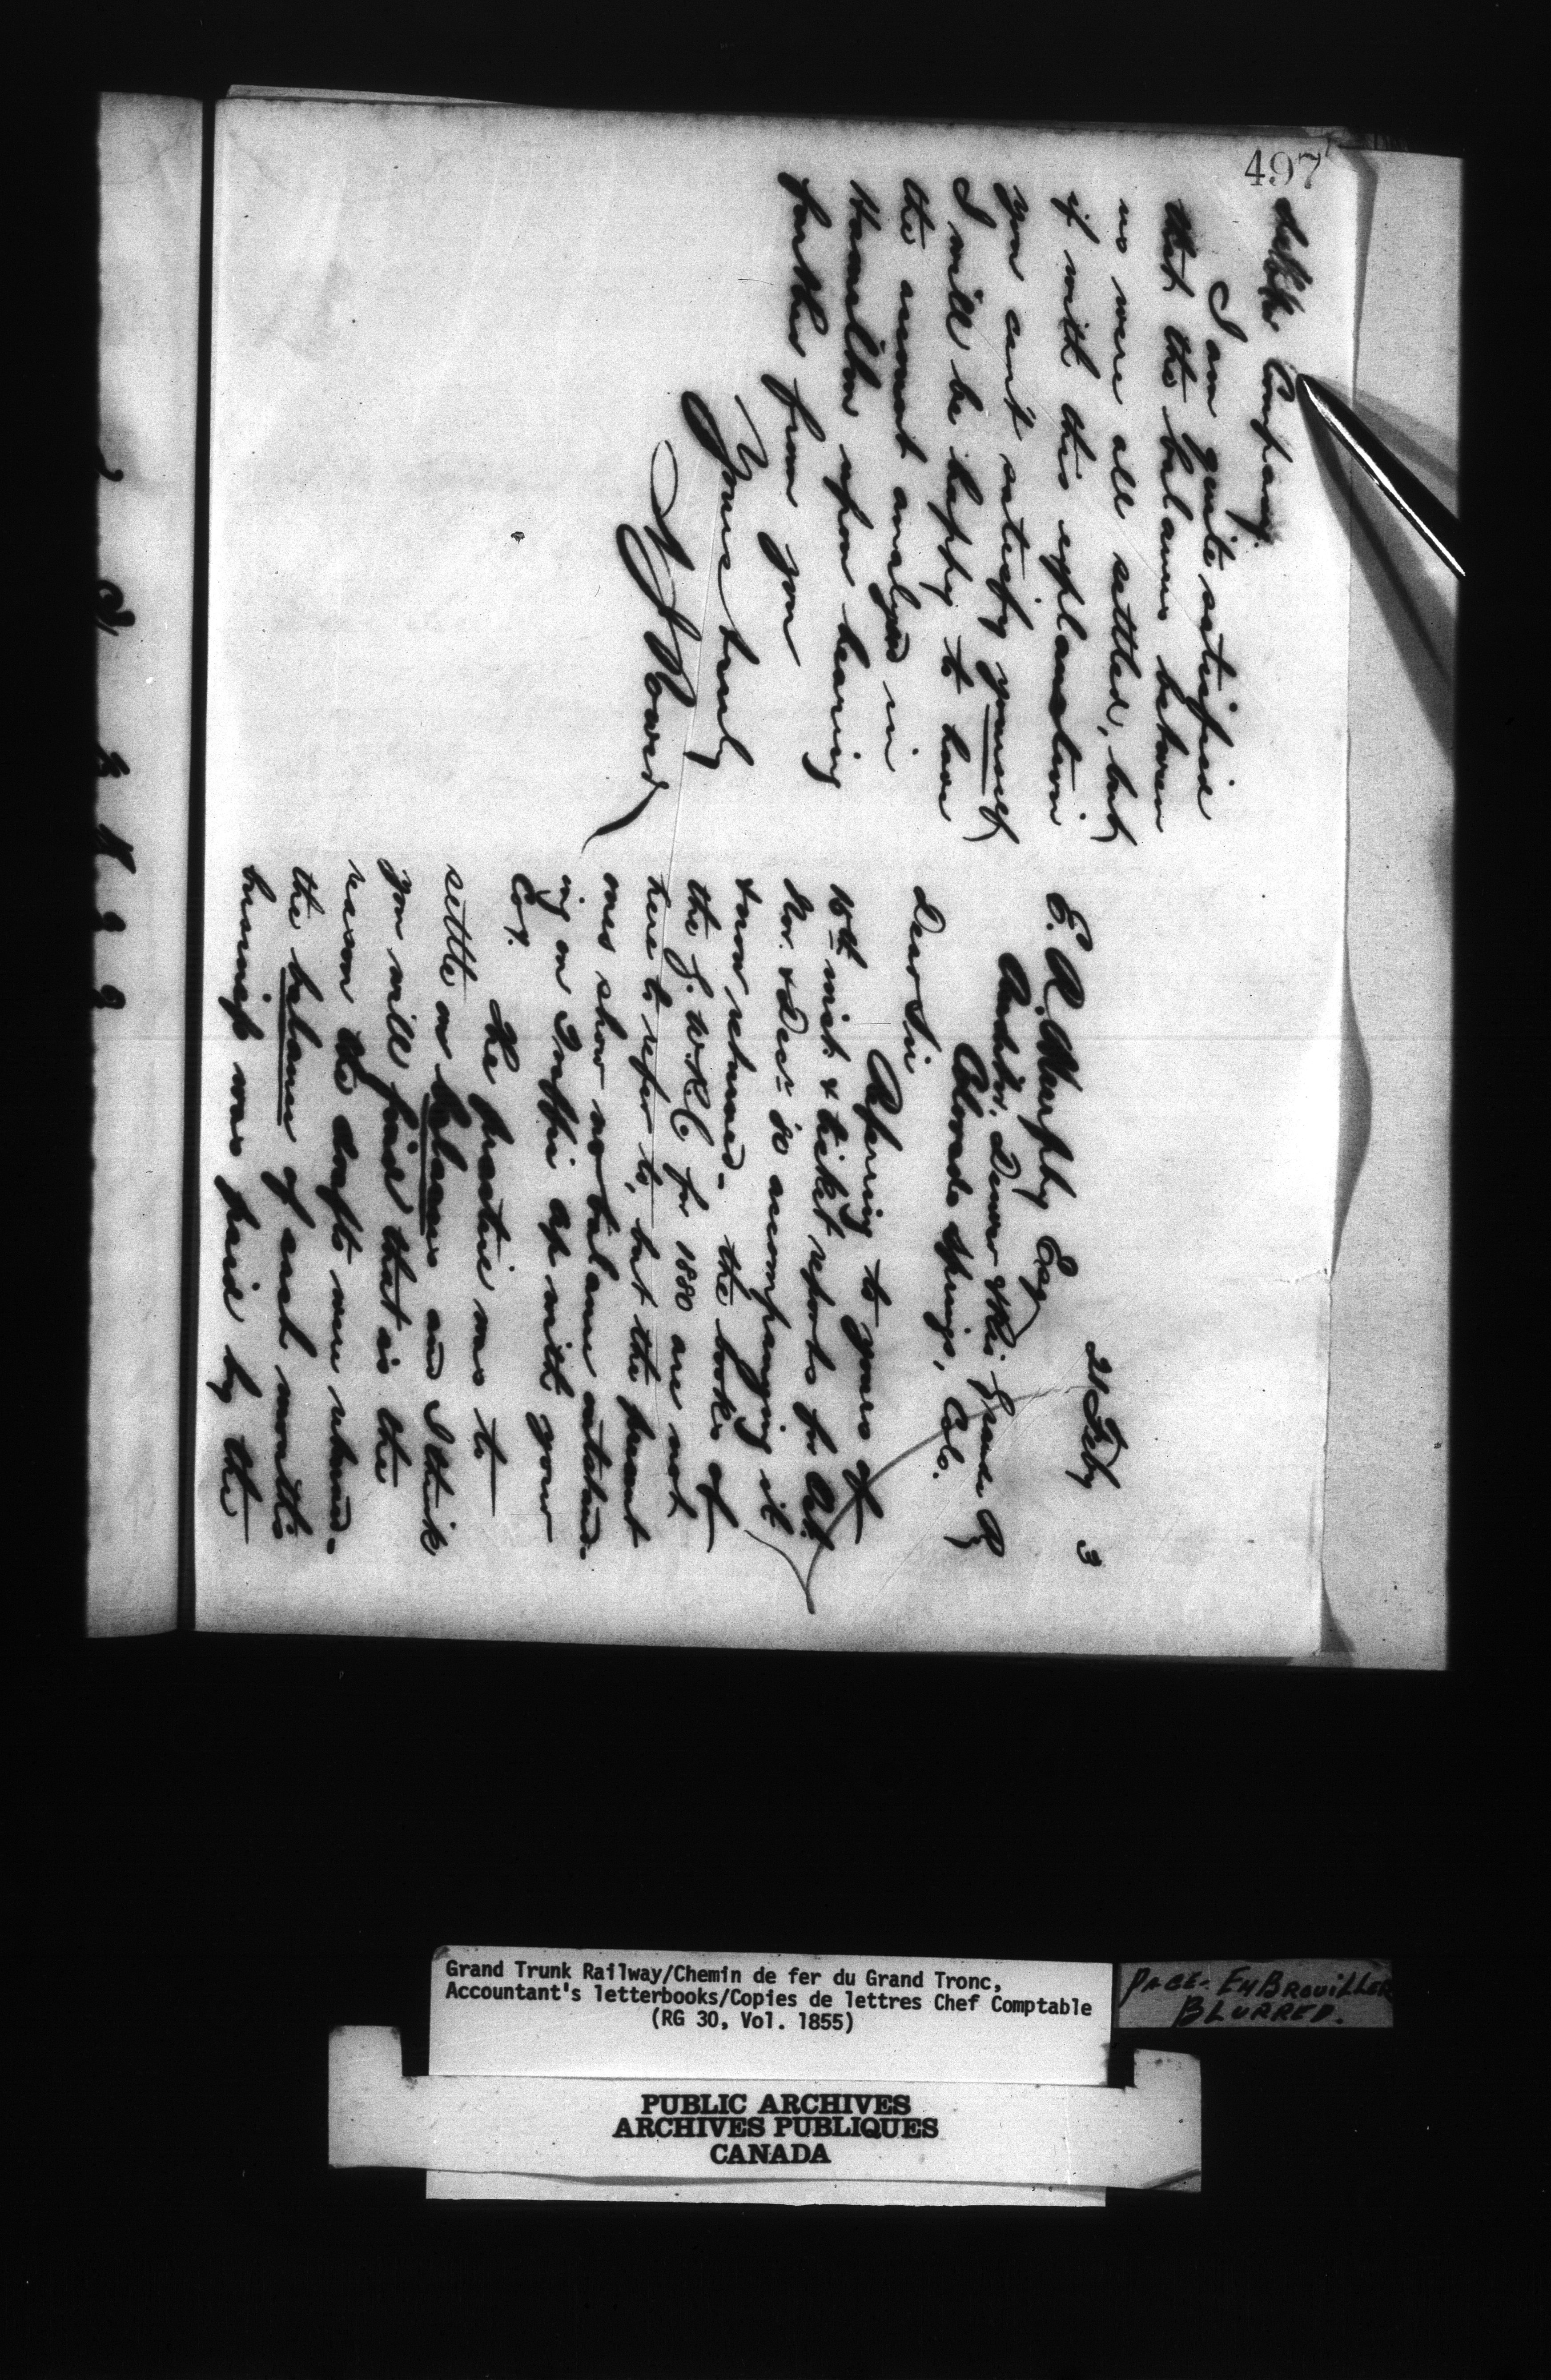 497
21 Feby 3
E. A. Murphy Esq
Auditor. Denver & Rio Grande Ry
Colorado Springs, Colo.
Dear Sir
Refering to yours of
16th inst. & ticket reports for Oct
Nov. & Decr 80 accompanying it
& now returned. the books of
the G. W. R. C. for 1880 are not
here to refer to, but the present
ones show no balance outstand-
ing on Traffic a/c with your
Coy.
The practice was to
settle on balances and I think
you will find that is the
reason the drafts were returned.
the balance of each month's
business was paid by the
debtor Company.
I am quite satisfied
that the balances between
us were all settled, but
if with this explanation
you can't satisfy yourself
I will be happy to have
the account analyzed in
Hamilton upon hearing
further from you
Yours truly
Grand Trunk Railway/Chemin de fer du Grand Tronc,
Accountant's letterbooks/Copies de lettres Chef Comptable
(RG 30, Vol. 1855)
PAGE- EMBROUILLER
BLURRED.
PUBLIC ARCHIVES
ARCHIVES PUBLIQUES
CANADA